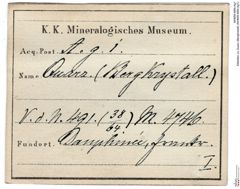 K. K. Mineralogisches Museum.
Acq. Post. A. g. i.
Name Quarz. (Bergkrystall.)
V. d. N. 491. (38/64) M. 4746
Fundort. Dauphinée, Frankr.
I.